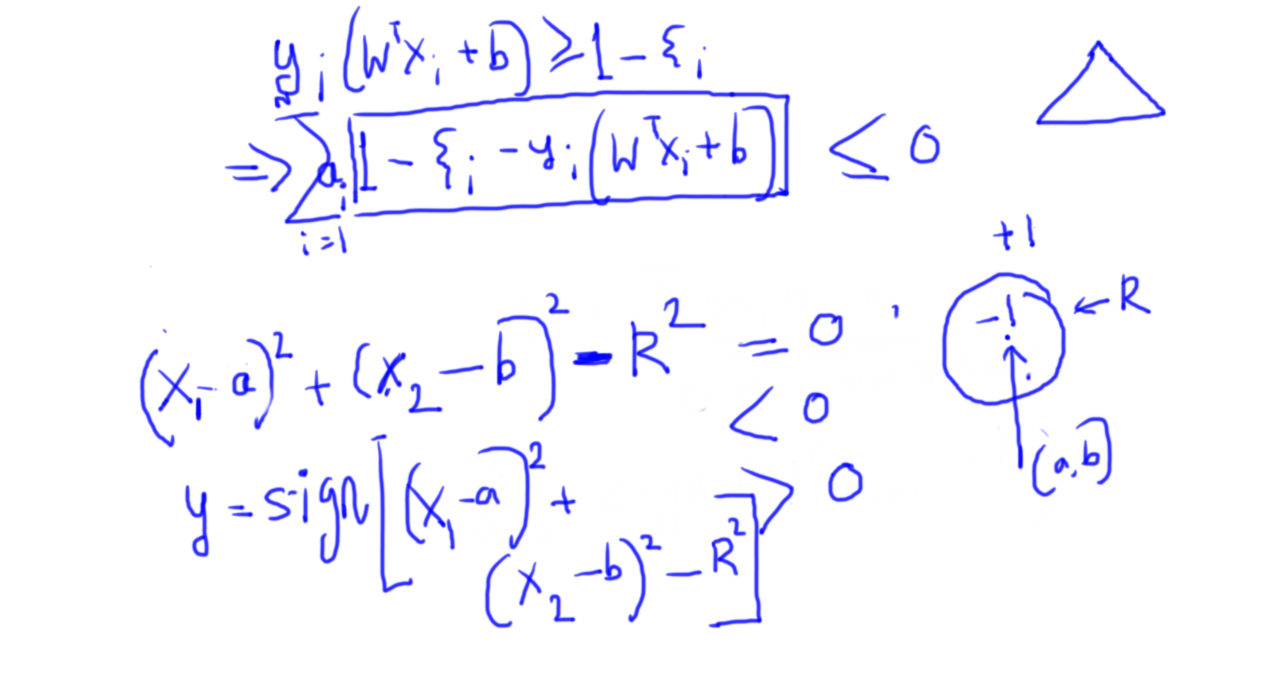 yᵢ(WᵀXᵢ + b) ≥ 1 − ξᵢ
=> ∑ᵢ₌₁ aᵢ [1 − ξᵢ − yᵢ(WᵀXᵢ + b)] ≤ 0
(X₁ − a)² + (X₂ − b)² − R² = 0
< 0
> 0
y = sign[(X₁ − a)² +
(X₂ − b)² − R²]
+1
−1
← R
(a,b)